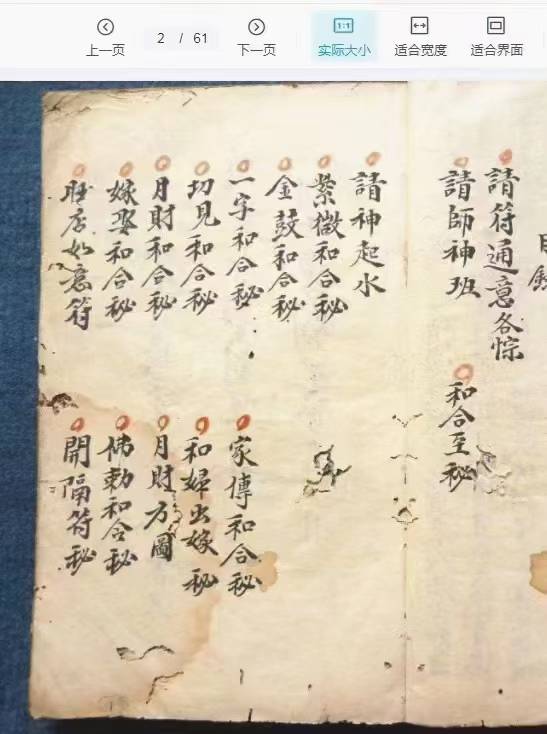 上一页
2 / 61
下一页
1:1
实际大小
适合宽度
适合界面
目錄
請符通意各悰
請師神班
和合至秘
請神起水
紫微和合秘
金鼓和合秘
一字和合秘
切見和合秘
月財和合秘
嫁娶和合秘
旺店如意符
家傳和合秘
和婦出嫁秘
月財方圖
佛勅和合秘
開隔符秘